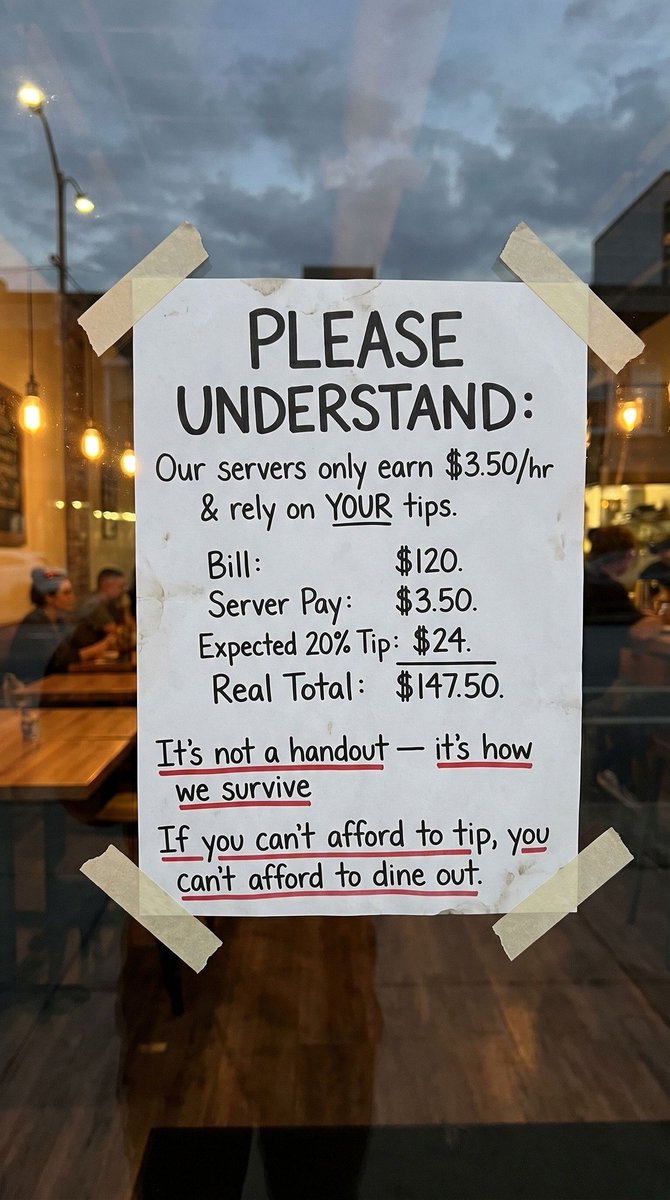 PLEASE
UNDERSTAND:
Our servers only earn $3.50/hr
& rely on YOUR tips.
Bill: $120.
Server Pay: $3.50.
Expected 20% Tip: $24.
Real Total: $147.50.
It's not a handout — it's how
we survive
If you can't afford to tip, you
can't afford to dine out.